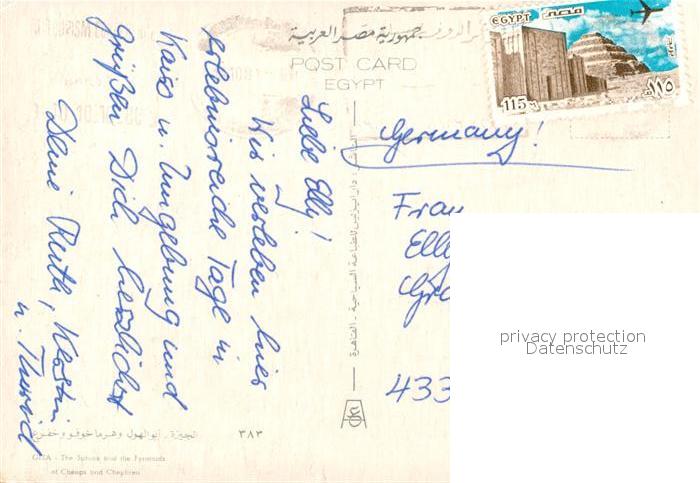 جمهورية مصر العربية
POST CARD
EGYPT
EGYPT مصر
115
١١٥
Liebe Elly!
Wir verleben hier
erlebnisreiche Tage in
Kairo u. Umgebung und
grüßen Dich herzlichst
Deine Ruth, Kerstin
u.
Germany!
Frau
Elly
433
٣٨٣
الجيزة - أبو الهول وهرما خوفو وخفرع
GIZA - The Sphinx and the Pyramids
of Cheops and Chephren
privacy protection
Datenschutz